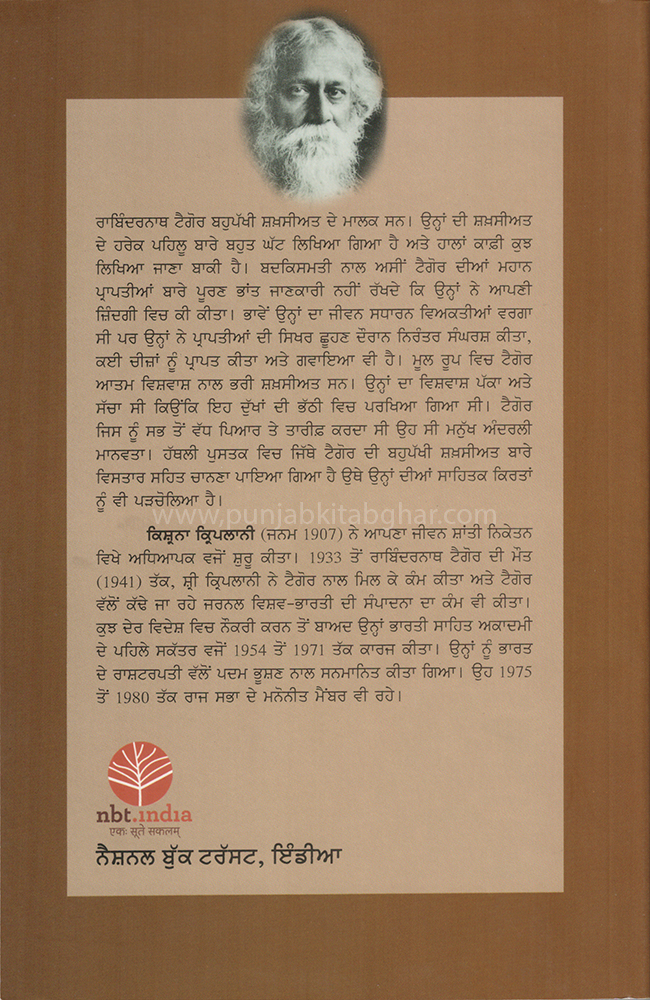 ਰਾਬਿੰਦਰਨਾਥ ਟੈਗੋਰ ਬਹੁਪੱਖੀ ਸ਼ਖ਼ਸੀਅਤ ਦੇ ਮਾਲਕ ਸਨ। ਉਨ੍ਹਾਂ ਦੀ ਸ਼ਖ਼ਸੀਅਤ
ਦੇ ਹਰੇਕ ਪਹਿਲੂ ਬਾਰੇ ਬਹੁਤ ਘੱਟ ਲਿਖਿਆ ਗਿਆ ਹੈ ਅਤੇ ਹਾਲਾਂ ਕਾਫ਼ੀ ਕੁਝ
ਲਿਖਿਆ ਜਾਣਾ ਬਾਕੀ ਹੈ। ਬਦਕਿਸਮਤੀ ਨਾਲ ਅਸੀਂ ਟੈਗੋਰ ਦੀਆਂ ਮਹਾਨ
ਪ੍ਰਾਪਤੀਆਂ ਬਾਰੇ ਪੂਰਣ ਭਾਂਤ ਜਾਣਕਾਰੀ ਨਹੀਂ ਰੱਖਦੇ ਕਿ ਉਨ੍ਹਾਂ ਨੇ ਆਪਣੀ
ਜ਼ਿੰਦਗੀ ਵਿਚ ਕੀ ਕੀਤਾ। ਭਾਵੇਂ ਉਨ੍ਹਾਂ ਦਾ ਜੀਵਨ ਸਧਾਰਨ ਵਿਅਕਤੀਆਂ ਵਰਗਾ
ਸੀ ਪਰ ਉਨ੍ਹਾਂ ਨੇ ਪ੍ਰਾਪਤੀਆਂ ਦੀ ਸਿਖਰ ਛੂਹਣ ਦੌਰਾਨ ਨਿਰੰਤਰ ਸੰਘਰਸ਼ ਕੀਤਾ,
ਕਈ ਚੀਜ਼ਾਂ ਨੂੰ ਪ੍ਰਾਪਤ ਕੀਤਾ ਅਤੇ ਗਵਾਇਆ ਵੀ ਹੈ। ਮੂਲ ਰੂਪ ਵਿਚ ਟੈਗੋਰ
ਆਤਮ ਵਿਸ਼ਵਾਸ਼ ਨਾਲ ਭਰੀ ਸ਼ਖ਼ਸੀਅਤ ਸਨ। ਉਨ੍ਹਾਂ ਦਾ ਵਿਸ਼ਵਾਸ਼ ਪੱਕਾ ਅਤੇ
ਸੱਚਾ ਸੀ ਕਿਉਂਕਿ ਇਹ ਦੁੱਖਾਂ ਦੀ ਭੱਠੀ ਵਿਚ ਪਰਖਿਆ ਗਿਆ ਸੀ। ਟੈਗੋਰ
ਜਿਸ ਨੂੰ ਸਭ ਤੋਂ ਵੱਧ ਪਿਆਰ ਤੇ ਤਾਰੀਫ਼ ਕਰਦਾ ਸੀ ਉਹ ਸੀ ਮਨੁੱਖ ਅੰਦਰਲੀ
ਮਾਨਵਤਾ। ਹੱਥਲੀ ਪੁਸਤਕ ਵਿਚ ਜਿੱਥੇ ਟੈਗੋਰ ਦੀ ਬਹੁਪੱਖੀ ਸ਼ਖ਼ਸੀਅਤ ਬਾਰੇ
ਵਿਸਤਾਰ ਸਹਿਤ ਚਾਨਣਾ ਪਾਇਆ ਗਿਆ ਹੈ ਉਥੇ ਉਨ੍ਹਾਂ ਦੀਆਂ ਸਾਹਿਤਕ ਕਿਰਤਾਂ
ਨੂੰ ਵੀ ਪੜਚੋਲਿਆ ਹੈ।
www.punjabkitabghar.com
ਕਿਸ਼੍ਰਨਾ ਕ੍ਰਿਪਲਾਨੀ (ਜਨਮ 1907) ਨੇ ਆਪਣਾ ਜੀਵਨ ਸ਼ਾਂਤੀ ਨਿਕੇਤਨ
ਵਿਖੇ ਅਧਿਆਪਕ ਵਜੋਂ ਸ਼ੁਰੂ ਕੀਤਾ। 1933 ਤੋਂ ਰਾਬਿੰਦਰਨਾਥ ਟੈਗੋਰ ਦੀ ਮੌਤ
(1941) ਤੱਕ, ਸ਼੍ਰੀ ਕ੍ਰਿਪਲਾਨੀ ਨੇ ਟੈਗੋਰ ਨਾਲ ਮਿਲ ਕੇ ਕੰਮ ਕੀਤਾ ਅਤੇ ਟੈਗੋਰ
ਵੱਲੋਂ ਕੱਢੇ ਜਾ ਰਹੇ ਜਰਨਲ ਵਿਸ਼ਵ-ਭਾਰਤੀ ਦੀ ਸੰਪਾਦਨਾ ਦਾ ਕੰਮ ਵੀ ਕੀਤਾ।
ਕੁਝ ਦੇਰ ਵਿਦੇਸ਼ ਵਿਚ ਨੌਕਰੀ ਕਰਨ ਤੋਂ ਬਾਅਦ ਉਨ੍ਹਾਂ ਭਾਰਤੀ ਸਾਹਿਤ ਅਕਾਦਮੀ
ਦੇ ਪਹਿਲੇ ਸਕੱਤਰ ਵਜੋਂ 1954 ਤੋਂ 1971 ਤੱਕ ਕਾਰਜ ਕੀਤਾ। ਉਨ੍ਹਾਂ ਨੂੰ ਭਾਰਤ
ਦੇ ਰਾਸ਼ਟਰਪਤੀ ਵੱਲੋਂ ਪਦਮ ਭੂਸ਼ਣ ਨਾਲ ਸਨਮਾਨਿਤ ਕੀਤਾ ਗਿਆ। ਉਹ 1975
ਤੋਂ 1980 ਤੱਕ ਰਾਜ ਸਭਾ ਦੇ ਮਨੋਨੀਤ ਮੈਂਬਰ ਵੀ ਰਹੇ।
nbt.india
एकः सूते सकलम्
ਨੈਸ਼ਨਲ ਬੁੱਕ ਟਰੱਸਟ, ਇੰਡੀਆ